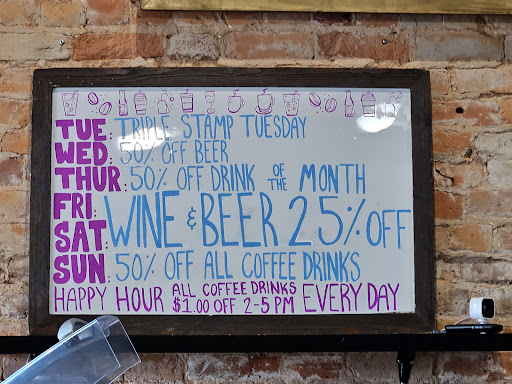 TUE: TRIPLE STAMP TUESDAY
WED: 50% OFF BEER
THUR: 50% OFF DRINK OF THE MONTH
FRI:
SAT: WINE & BEER 25% OFF
SUN: 50% OFF ALL COFFEE DRINKS
HAPPY HOUR ALL COFFEE DRINKS $1.00 OFF 2-5 PM EVERY DAY